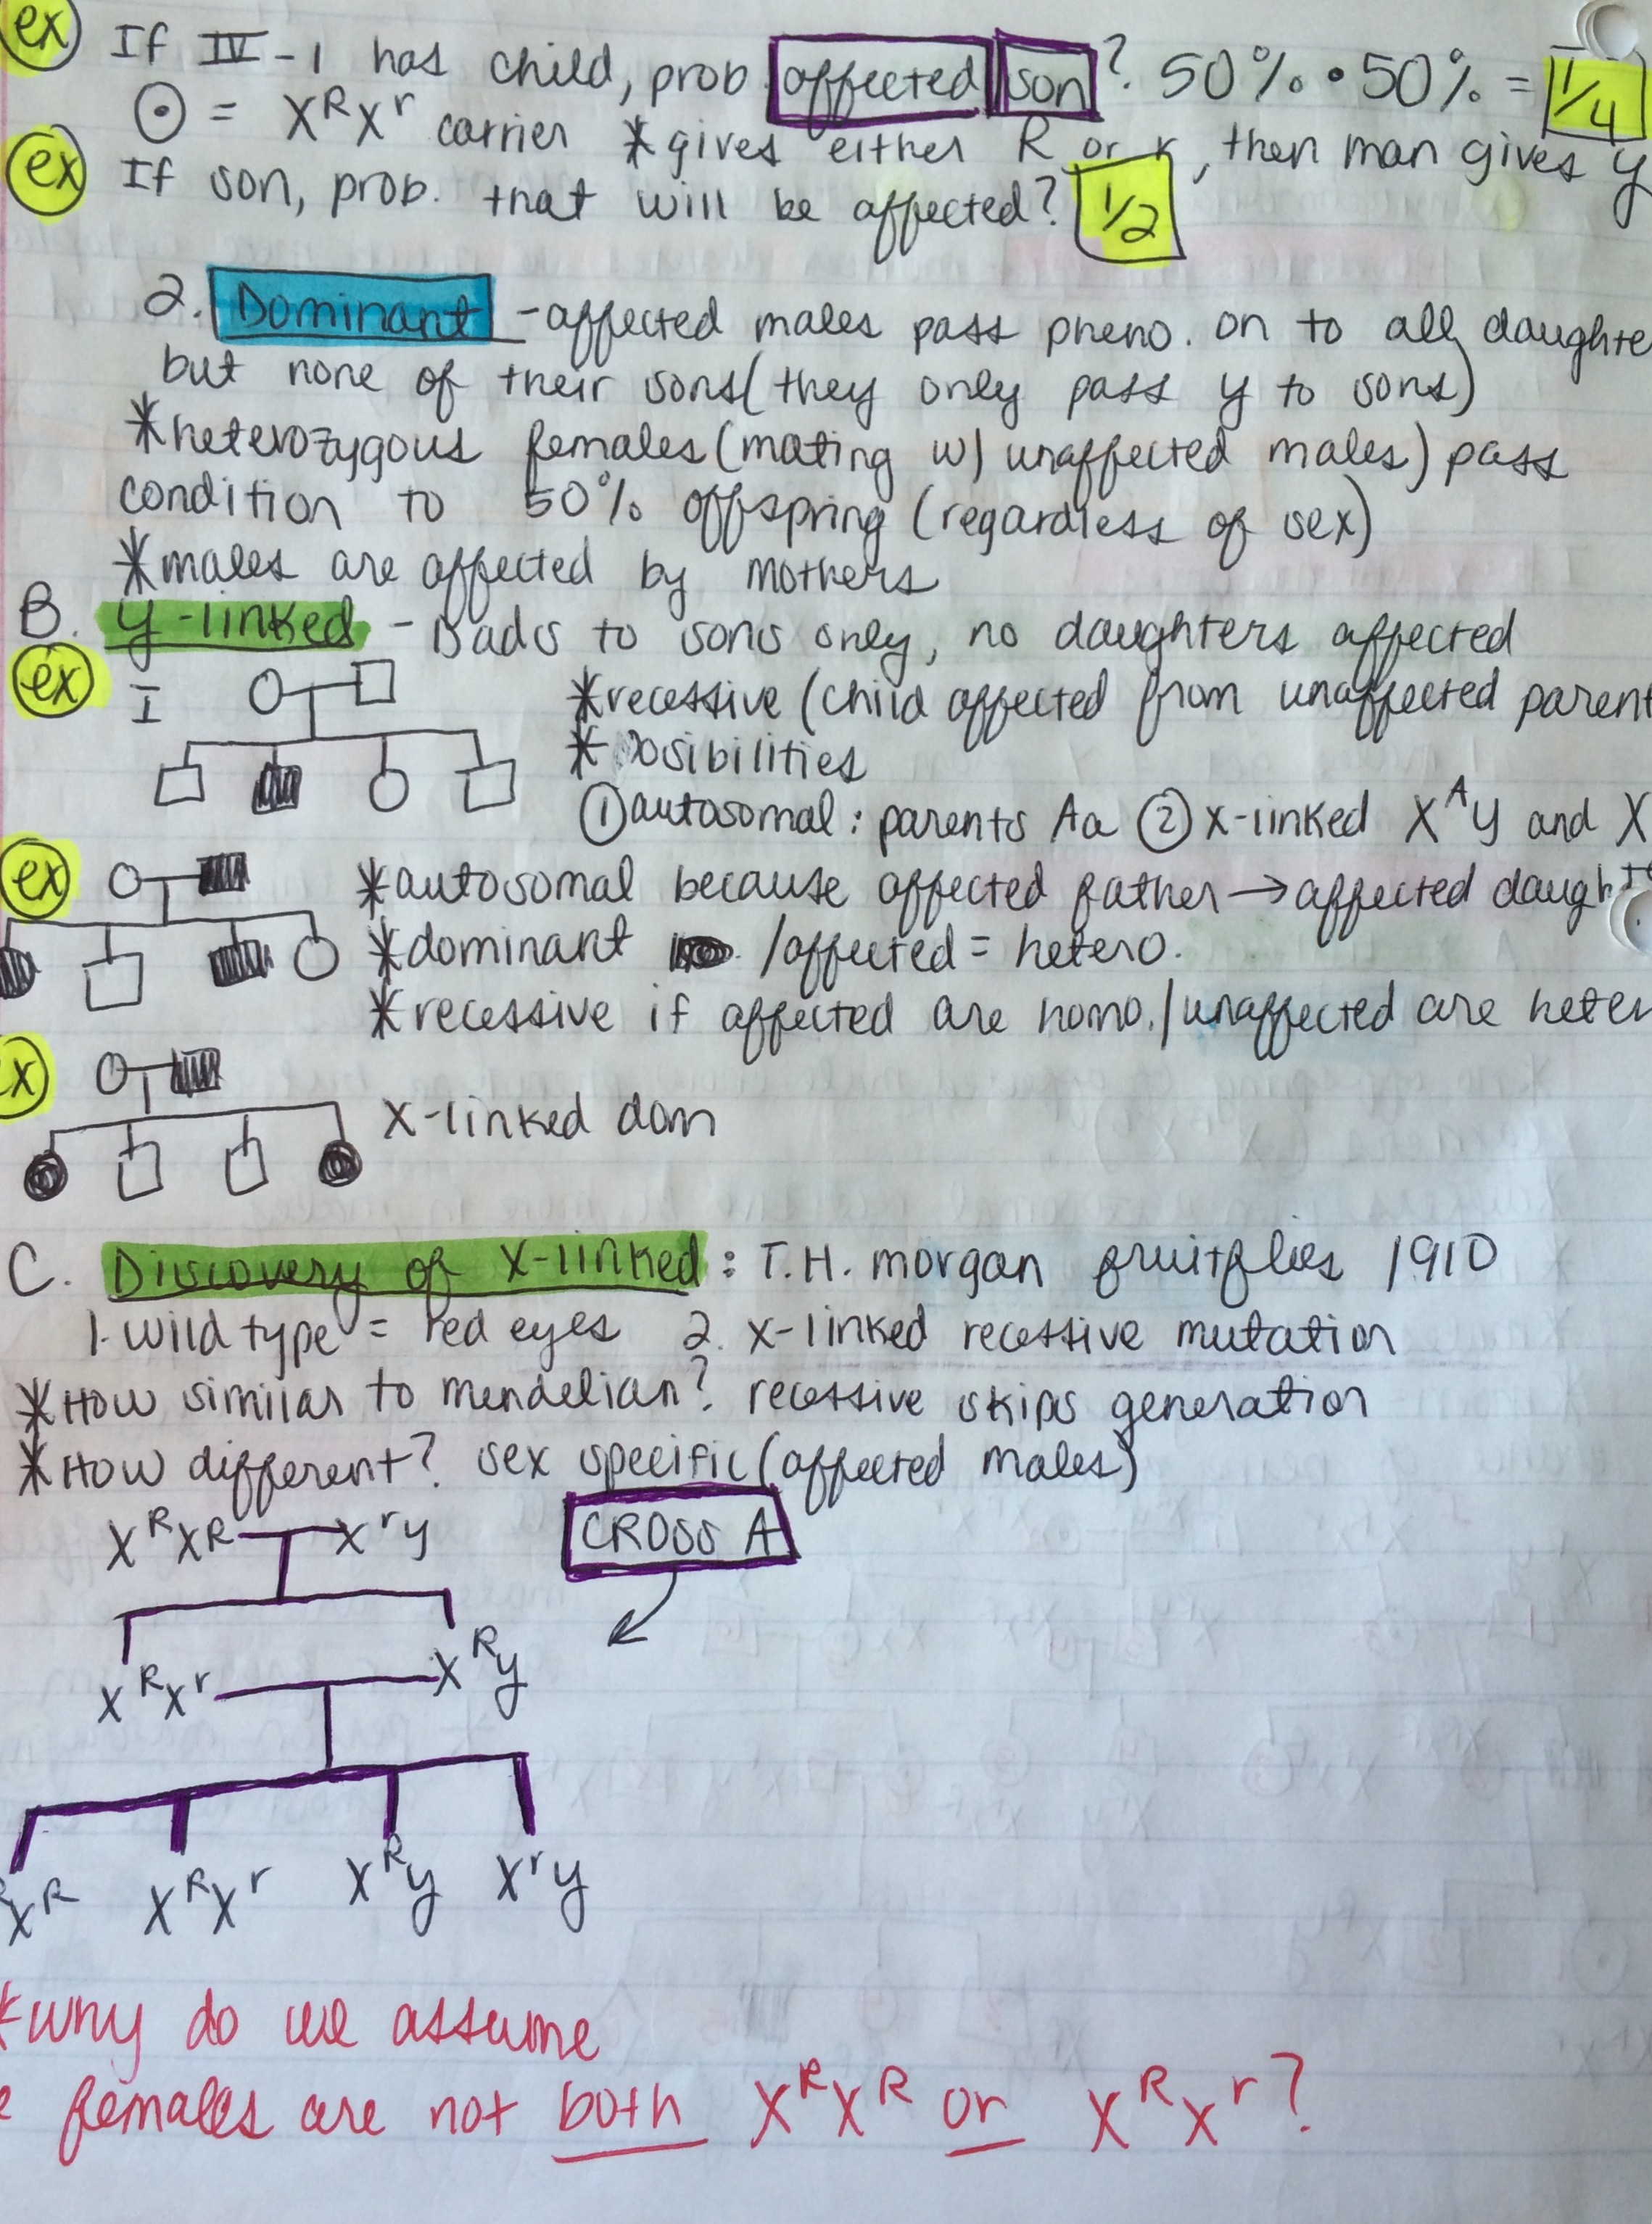 ex If IV-1 has child, prob. affected son? 50% • 50% = 1/4
⊙ = X^R X^r carrier *gives either R or r, then man gives y
ex If son, prob. that will be affected? 1/2
2. Dominant - affected males pass pheno. on to all daughte
but none of their sons (they only pass y to sons)
*heterozygous females (mating w/ unaffected males) pass
condition to 50% offspring (regardless of sex)
*males are affected by mothers
B. y-linked - Dads to sons only, no daughters affected
ex I
*recessive (child affected from unaffected parent
* posibilities
① autosomal: parents Aa ② x-linked X^A y and X
ex *autosomal because affected father → affected daught
*dominant /affected = hetero.
*recessive if affected are homo. / unaffected are heter
ex X-linked dom
C. Discovery of X-linked: T.H. morgan fruitflies 1910
1. wild type = red eyes 2. x-linked recessive mutation
*How similar to mendelian? recessive skips generation
*How different? sex specific (affected males)
X^R X^R X^r y CROSS A
X^R X^r X^R y
X^R X^R X^r X^R y X^r y
*why do we assume
females are not both X^R X^R or X^R X^r?